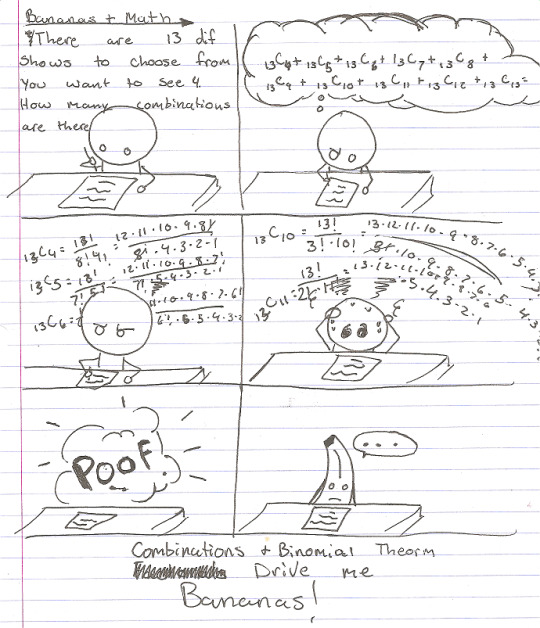 Bananas + Math
There are 13 dif
Shows to choose from
You want to see 4.
How many combinations
are there
13C4 + 13C5 + 13C6 + 13C7 + 13C8 +
13C9 + 13C10 + 13C11 + 13C12 + 13C13 =
13C4 = 13!/8!4! = 12·11·10·9·8!/8!·4·3·2·1
13C5 = 13!/7!5! = 12·11·10·9·8·7!/7!·5·4·3·2·1
13C6 = 11·10·9·8·7·6!/6!·6·5·4·3·2
13C10 = 13!/3!·10! = 13·12·11·10·9·8·7·6·5·4·3
13C11 = 13!
POOF
...
Combinations + Binomial Theorm
Drive me
Bananas!